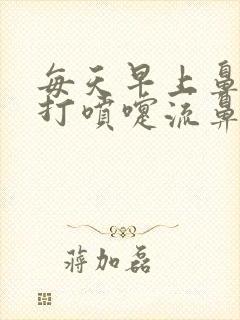 每天早上鼻
打噴嚏流鼻
蔣加磊